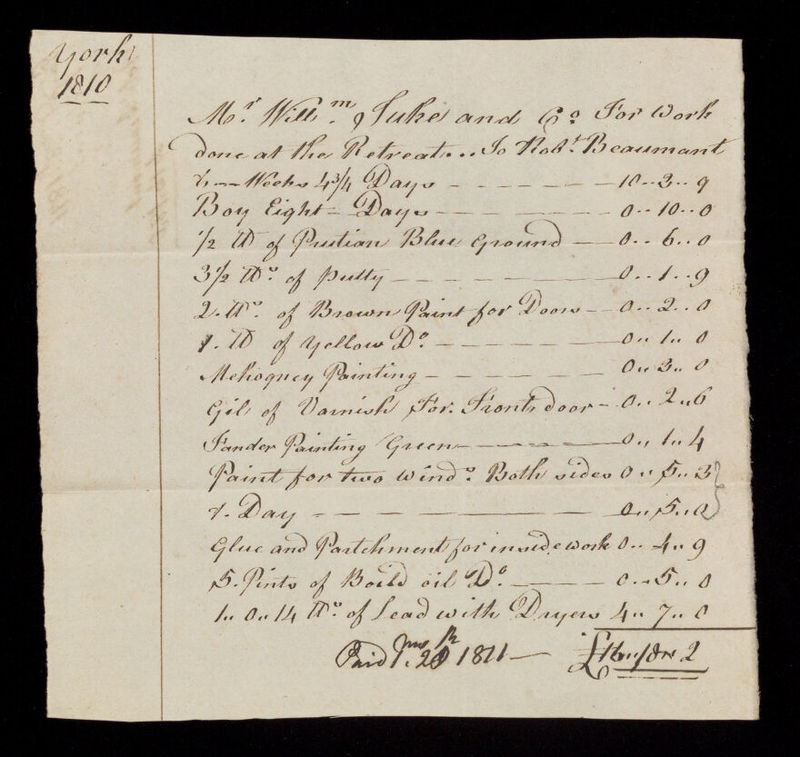 York
1810
Mr. Willm. Tuke and Co. For Work
done at the Retreat.. To Robt. Beaumant
Weeks 4 3/4 Days 10..3..9
Boy Eight Days 0..10..0
1/2 lb of Prutian Blue Ground 0..6..0
3 1/2 lbs. of putty 0..1..9
2. lbs. of Brown Paint for Doors 0..2..0
1. lb of Yellow Do. 0..1..0
Mehogney Painting 0..3..0
Gil of Varnish For. Front door 0..2..6
Fander Painting Green 0..1..4
Paint for two winds. Both sides 0..5..3
Day 0..5..0
Glue and Partchment for inside work 0..4..9
5. Pints of Boild oil Do. 0..5..0
1..0..14 lbs. of Lead with Dryers 4..7..0
Paid 1 mo. 20 1811 £ 2